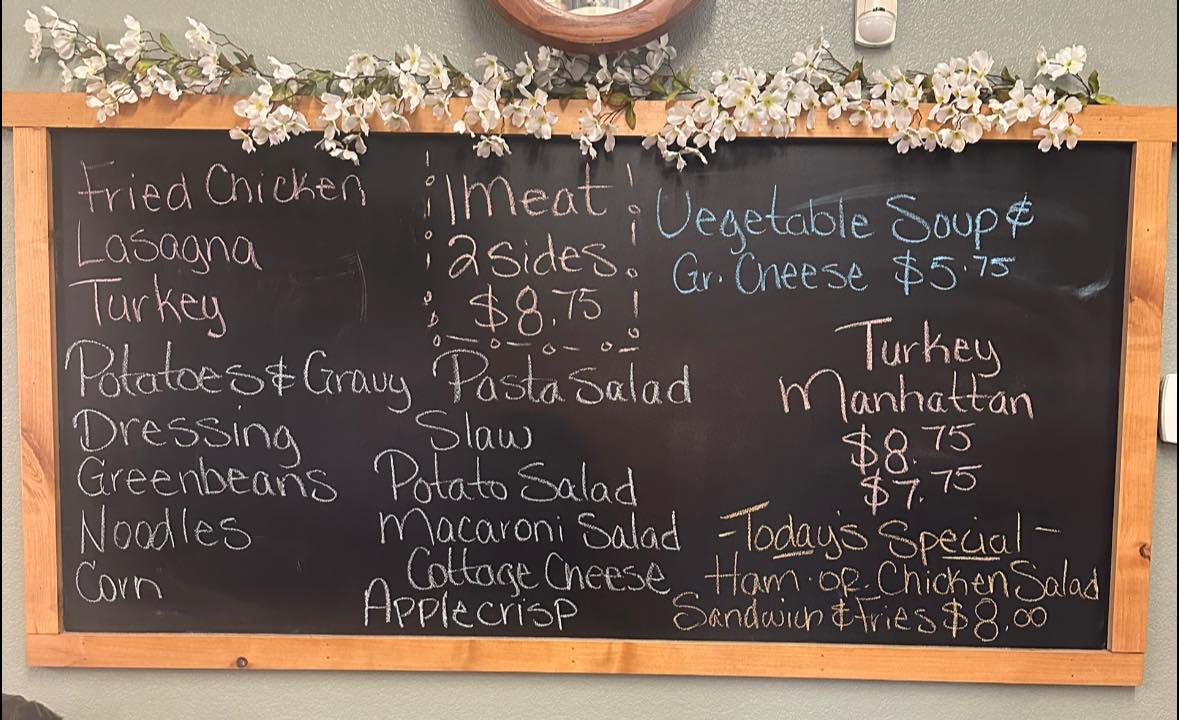 Fried Chicken
Lasagna
Turkey
Potatoes & Gravy
Dressing
Greenbeans
Noodles
Corn
1 Meat
2 sides
$8.75
Pasta Salad
Slaw
Potato Salad
Macaroni Salad
Cottage Cheese
Applecrisp
Vegetable Soup &
Gr. Cheese $5.75
Turkey
Manhattan
$8.75
$7.75
-Today's Special-
Ham or Chicken Salad
Sandwich & fries $8.00